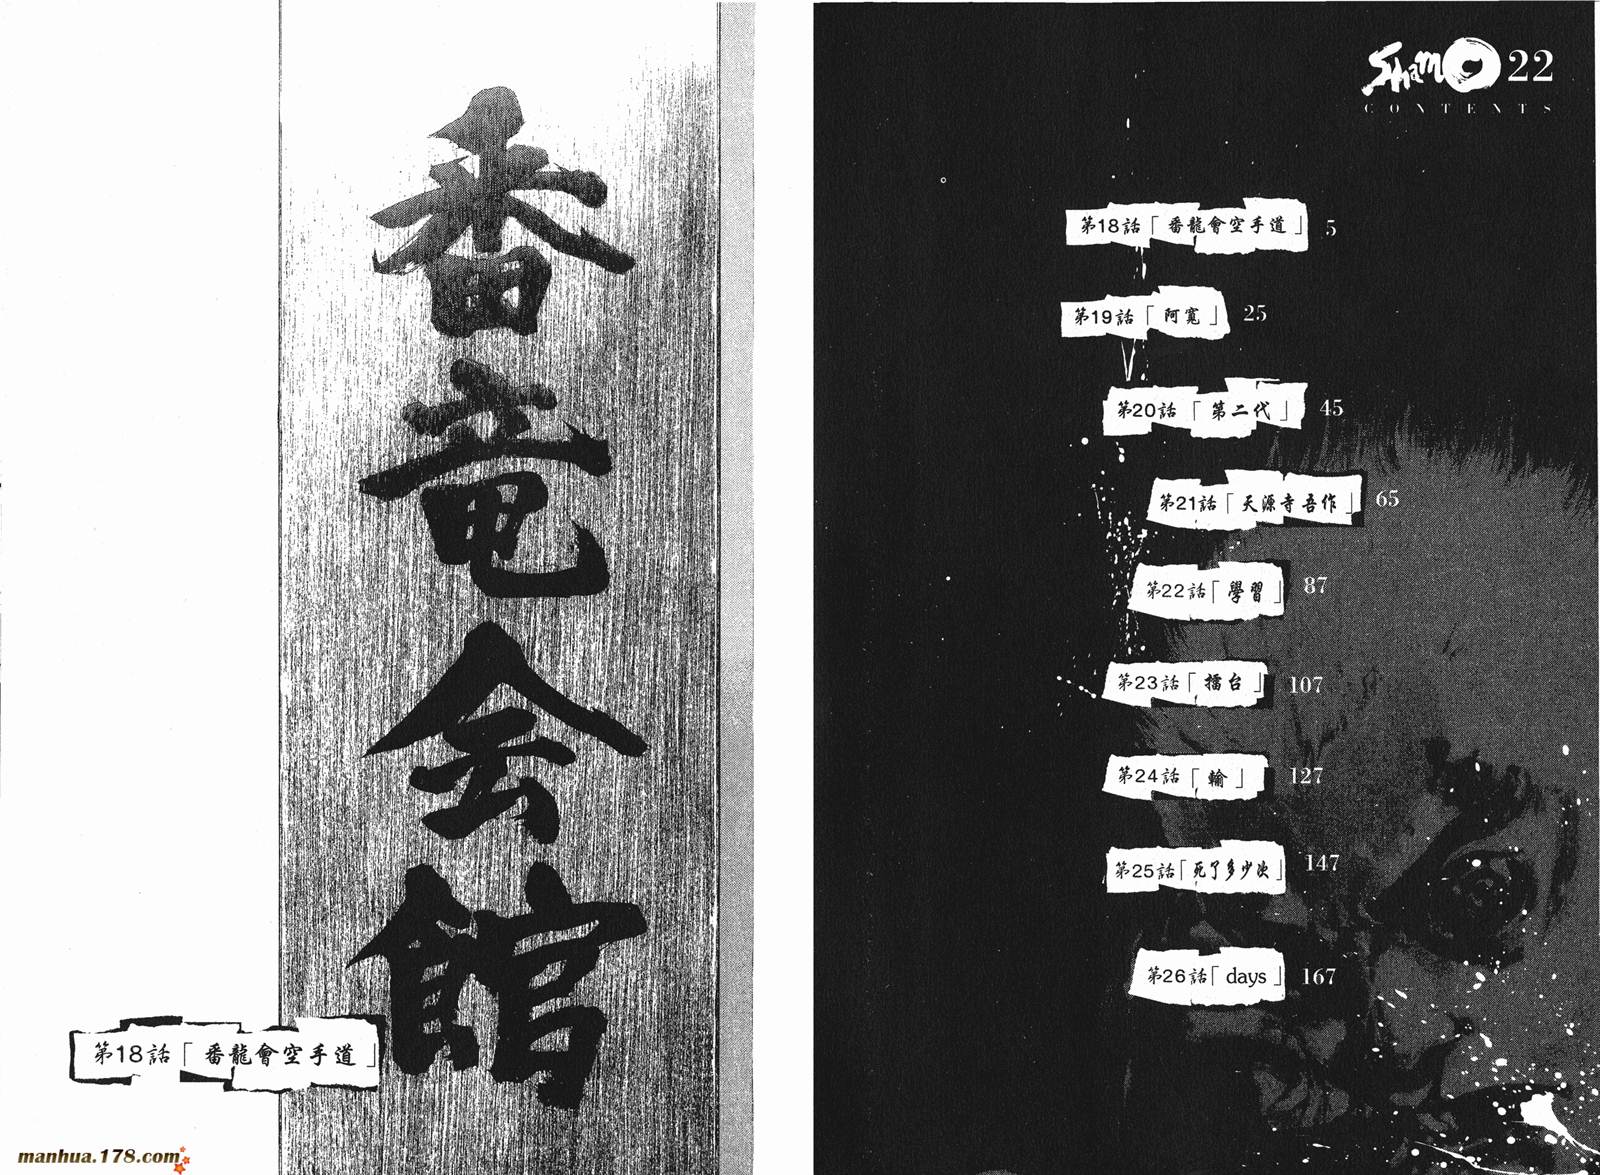 Shamo 22
CONTENTS
第18話「番龍會空手道」 5
第19話「阿寬」 25
第20話「第二代」 45
第21話「天源寺吾作」 65
第22話「學習」 87
第23話「擂台」 107
第24話「輸」 127
第25話「死了多少次」 147
第26話「days」 167
番竜会館
第18話「番龍會空手道」
manhua.178.com